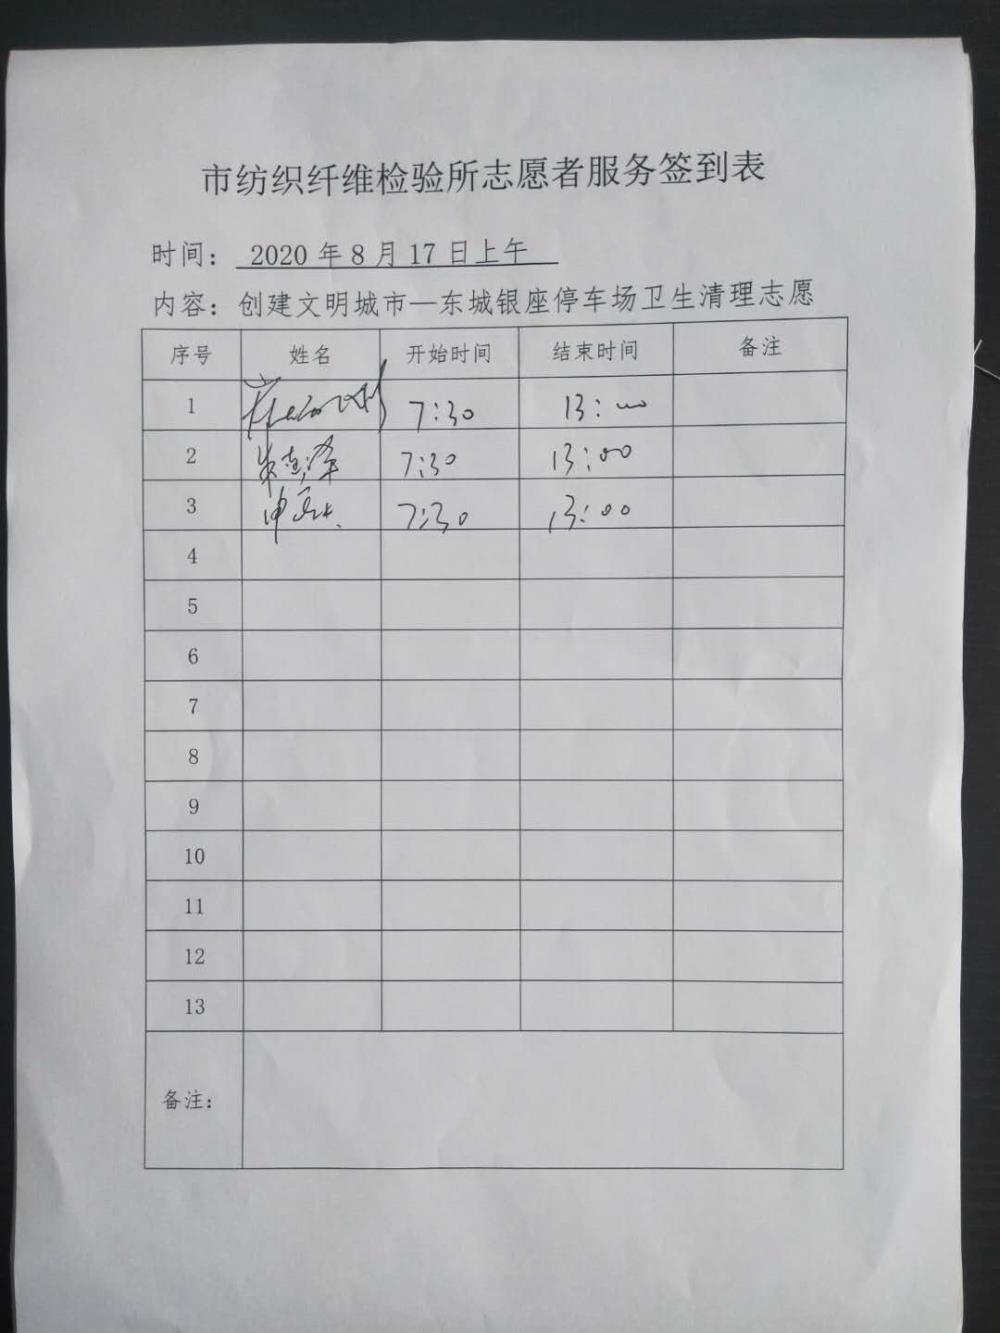 市纺织纤维检验所志愿者服务签到表
时间： 2020 年 8 月 17 日上午
内容：创建文明城市—东城银座停车场卫生清理志愿
序号 姓名 开始时间 结束时间 备注
1 7:30 13:00
2 7:30 13:00
3 7:30 13:00
4
5
6
7
8
9
10
11
12
13
备注：